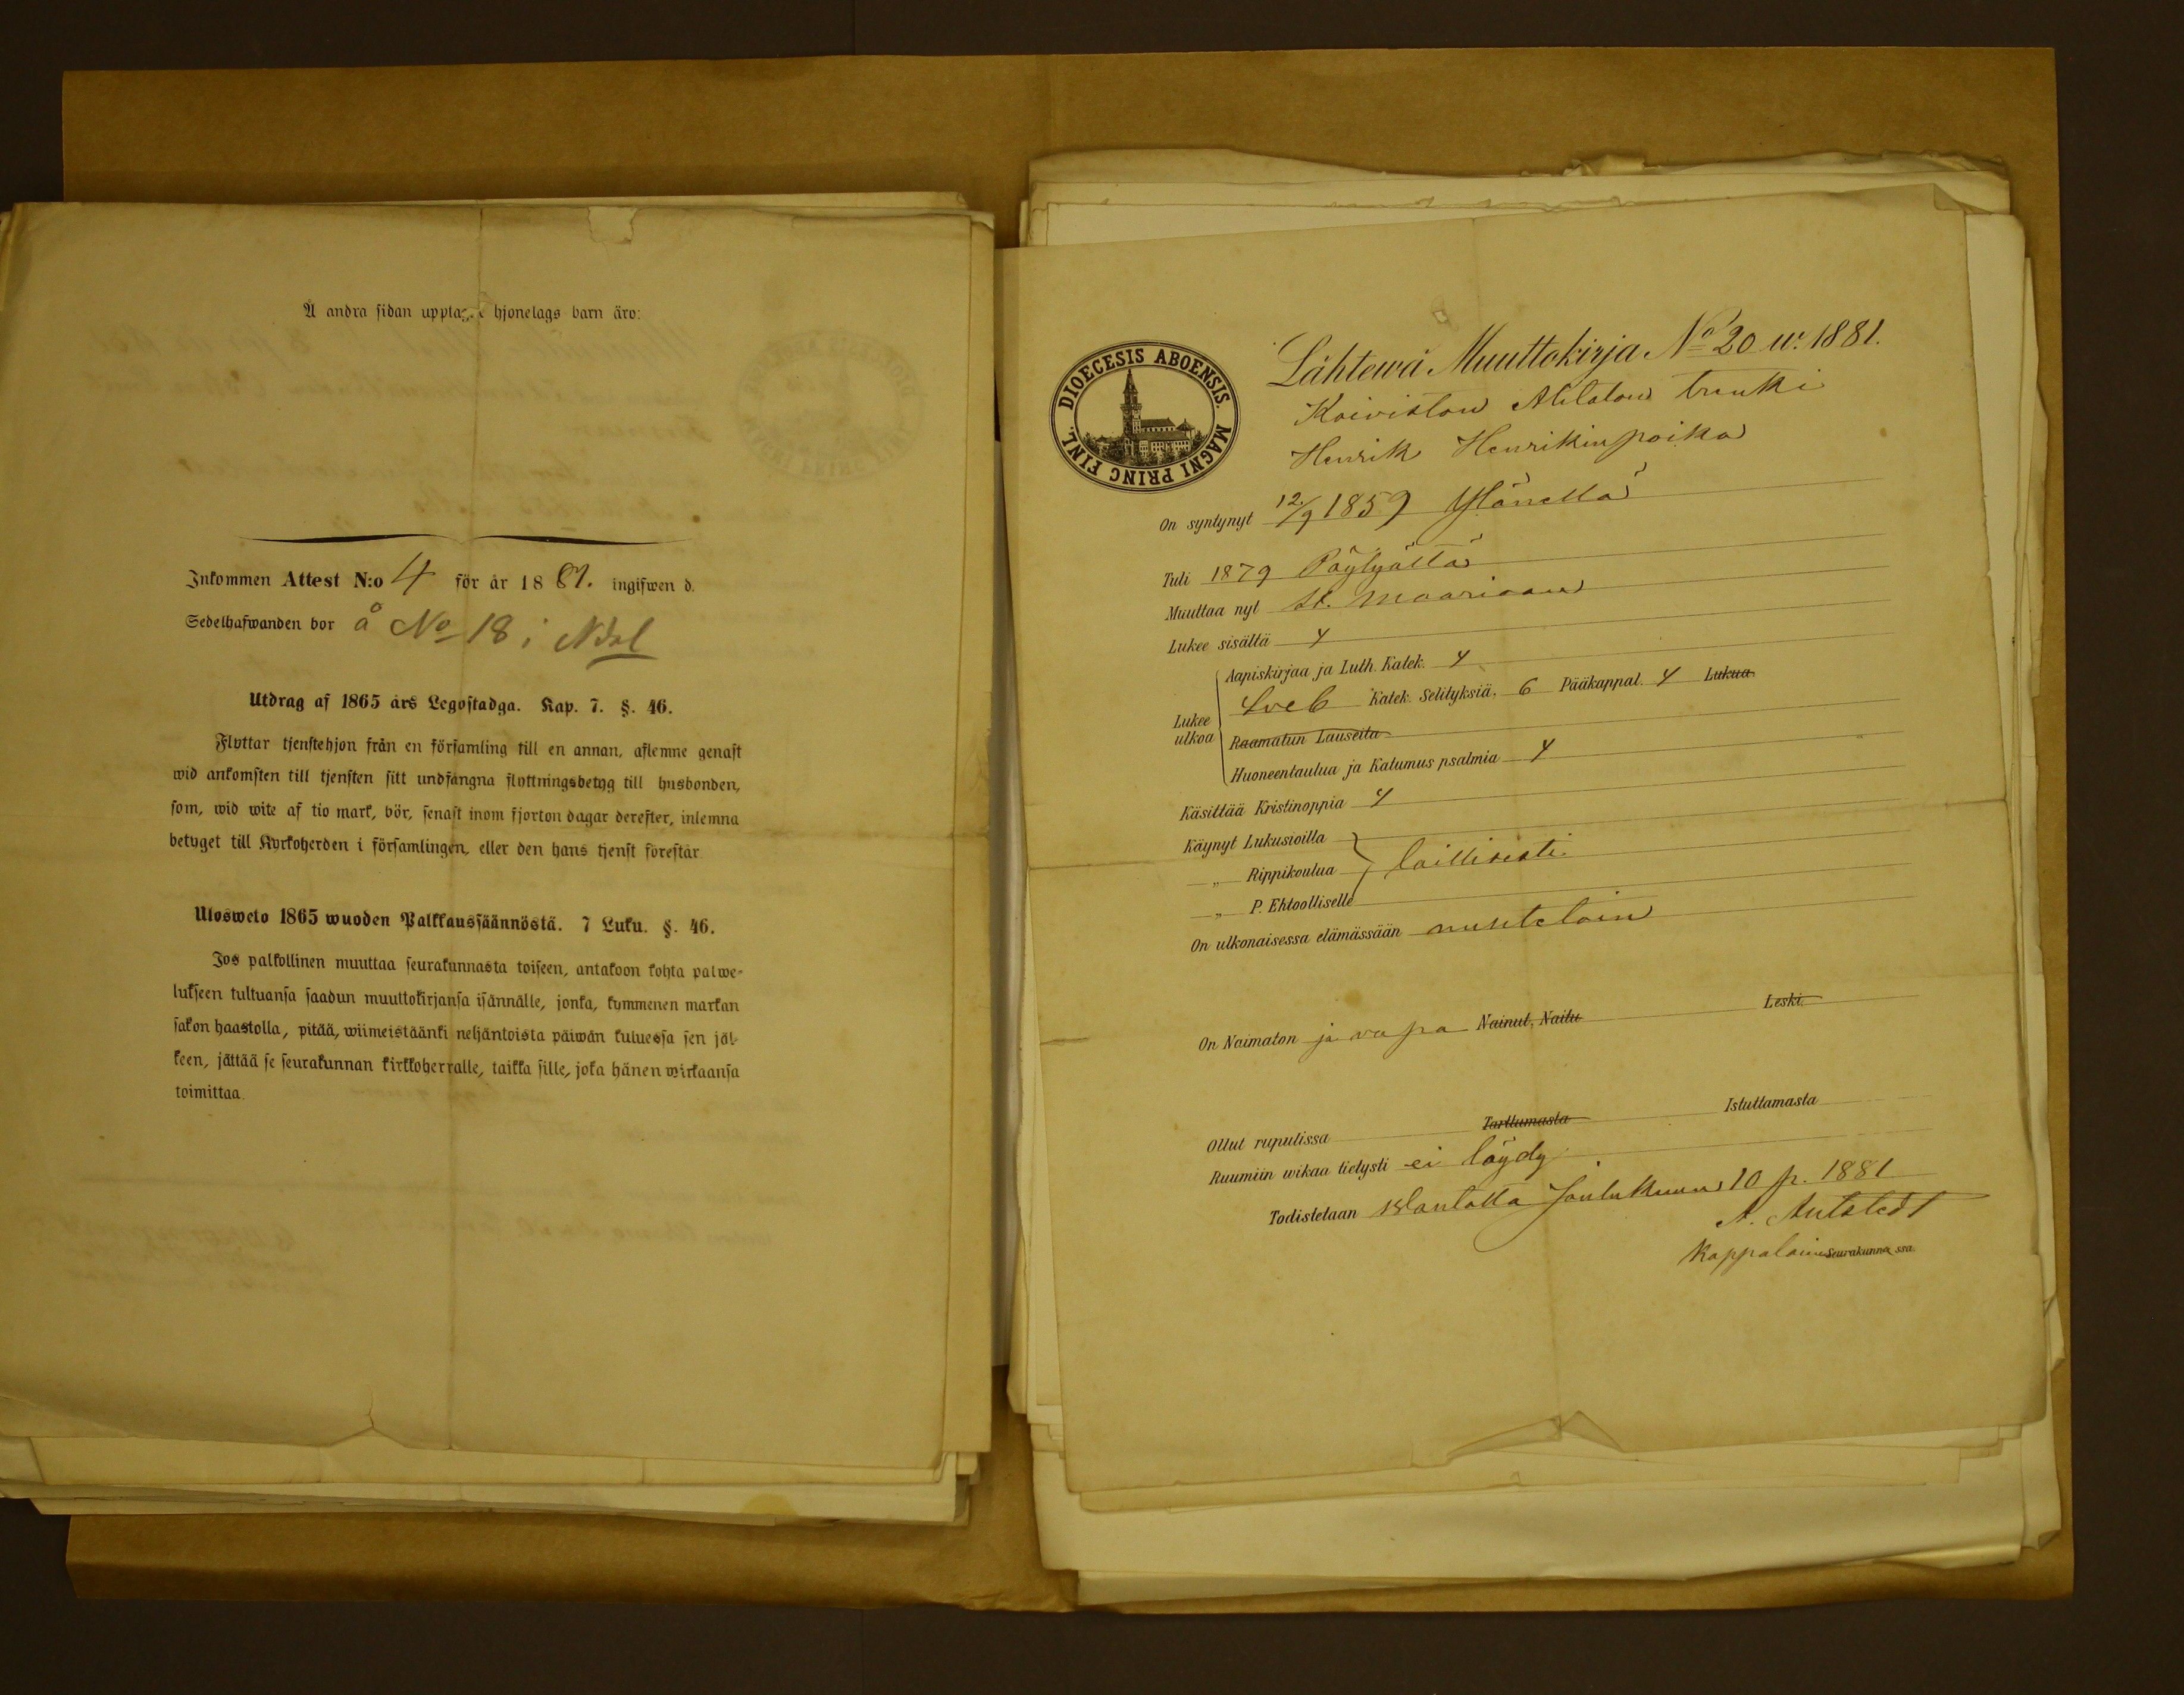 Å andra sidan upptagne hjonelags barn äro:
Inkommen Attest N:o 4 för år 1881. ingifwen d.
Sedelhafwanden bor å No 18 i Ndal
Utdrag af 1865 års Legostadga. Kap. 7. §. 46.
Flyttar tjenstehjon från en församling till en annan, aflemne genast
wid ankomsten till tjensten sitt undfångna flyttningsbetyg till husbonden,
som, wid wite af tio mark, bör, senast inom fjorton dagar derefter, inlemna
betyget till Kyrkoherden i församlingen, eller den hans tjenst förestår.
Uloswelo 1865 wuoden Palkkaussäännöstä. 7 Luku. §. 46.
Jos palkollinen muuttaa seurakunnasta toiseen, antakoon kohta palwe-
lukseen tultuansa saadun muuttokirjansa isännälle, jonka, kymmenen markan
sakon haastolla, pitää, wiimeistäänki neljäntoista päiwän kuluessa sen jäl-
keen, jättää se seurakunnan kirkkoherralle, taikka sille, joka hänen wirkaansa
toimittaa.
DIOECESIS ABOENSIS. MAGNI PRINC FINL.
Lähtewä Muuttokirja No 20 w. 1881.
Koiviston Alitalon trenki
Henrik Henrikinpoika
On syntynyt 12/9 1859 Ylänellä
Tuli 1879 Pöytyältä
Muuttaa nyt St. Maariaan
Lukee sisältä 4
Aapiskirjaa ja Luth. Katek. 4
Lukee ulkoa Sveb Katek. Selityksiä, 6 Pääkappal. 4 Lukua.
Raamatun Lauseita
Huoneentaulua ja Katumus psalmia 4
Käsittää Kristinoppia 4
Käynyt Lukusioilla
„ Rippikoulua laillisesti.
„ P. Ehtoolliselle
On ulkonaisessa elämässään nuhteetoin
On Naimaton ja vapa Nainut, Naitu Leski.
Ollut rupulissa Tarttumasta Istuttamasta
Ruumiin wikaa tietysti ei löydy
Todistetaan Joulukuun 10 p. 1881
Kappalainen Seurakunnassa.